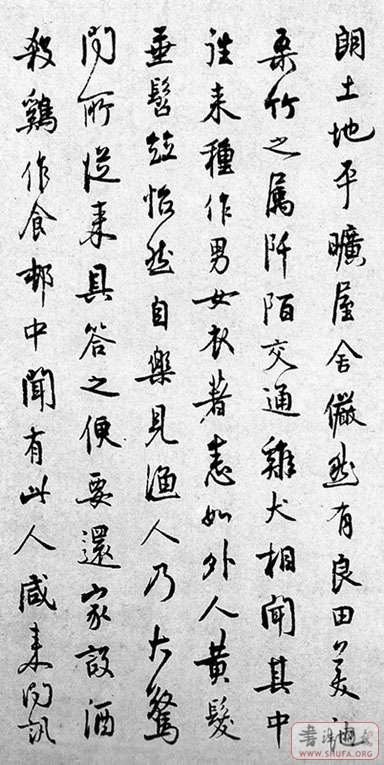 朗土地平曠屋舍儼然有良田美池
桑竹之属阡陌交通雞犬相聞其中
往来種作男女衣著悉如外人黄髮
垂髫竝怡然自樂見漁人乃大驚
问所從来具答之便要還家設酒
殺鷄作食邨中聞有此人咸来问訊
WWW.SHUFA.ORG